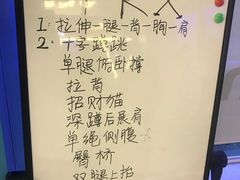 1：拉伸—腿—背—胸—肩
2：十字蹲跳
单腿俯卧撑
拉背
招财猫
深蹲后展肩
单绳侧腹
臀桥
双腿上抬